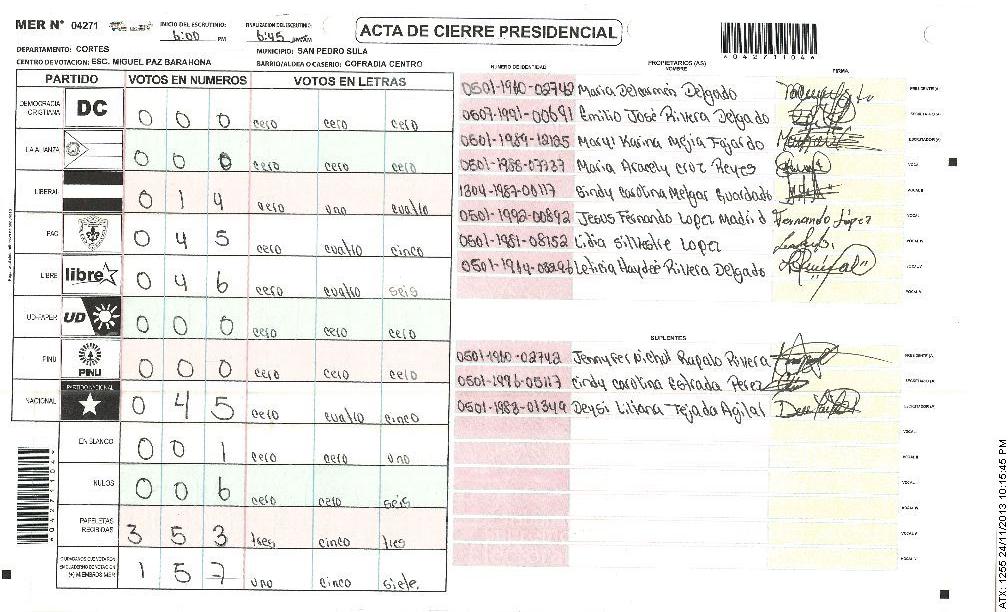 MER N° 04271 INICIO DEL ESCRUTINIO: 6:00 PM FINALIZACION DEL ESCRUTINIO: 6:45
ACTA DE CIERRE PRESIDENCIAL
*04271104*
DEPARTAMENTO: CORTES MUNICIPIO: SAN PEDRO SULA
CENTRO DE VOTACION: ESC. MIGUEL PAZ BARAHONA BARRIO/ALDEA O CASERIO: COFRADIA CENTRO
PARTIDO VOTOS EN NUMEROS VOTOS EN LETRAS
DEMOCRACIA CRISTIANA DC 0 0 0 cero cero cero
LA ALIANZA 0 0 0 cero cero cero
LIBERAL 0 1 4 cero uno cuatro
PAC 0 4 5 cero cuatro cinco
LIBRE libre 0 4 6 cero cuatro seis
UD-FAPER UD 0 0 0 cero cero cero
PINU PINU 0 0 0 cero cero cero
NACIONAL PARTIDO NACIONAL 0 4 5 cero cuatro cinco
EN BLANCO 0 0 1 cero cero uno
NULOS 0 0 6 cero cero seis
PAPELETAS RECIBIDAS 3 5 3 tres cinco tres
CIUDADANOS QUE VOTARON EN CUADERNO DE VOTACION (+) MIEMBROS MER 1 5 7 uno cinco siete.
NUMERO DE IDENTIDAD PROPIETARIOS (AS) NOMBRE FIRMA
0501-1960-02742 Maria Delcarmen Delgado PRESIDENTE(A)
0501-1991-00691 Emilio José Rivera Delgado SECRETARIO(A)
0501-1989-12125 Maryi Karina Mejia Fajardo ESCRUTADOR(A)
0501-1988-07737 Maria Aracely Cruz Reyes VOCAL I
1804-1987-00117 Sindy Carolina Melgar Guardado VOCAL II
0501-1992-00892 Jesus Fernando Lopez Madrid Fernando López VOCAL
0501-1981-08152 Lidia Silvestre Lopez VOCAL IV
Leticia Haydeé Rivera Delgado VOCAL V
VOCAL VI
SUPLENTES
0501-1960-02742 Jennyfer Nichol Rapalo Rivera PRESIDENTE(A)
0501-1996-05117 Cindy Carolina Estrada Perez SECRETARIO(A)
0501-1988-01349 Deysi Liliana Tejada ESCRUTADOR(A)
VOCAL I
VOCAL II
VOCAL
VOCAL IV
VOCAL V
VOCAL VI
*04271104*
ATX: 1255 24/11/2013 10:15:45 PM